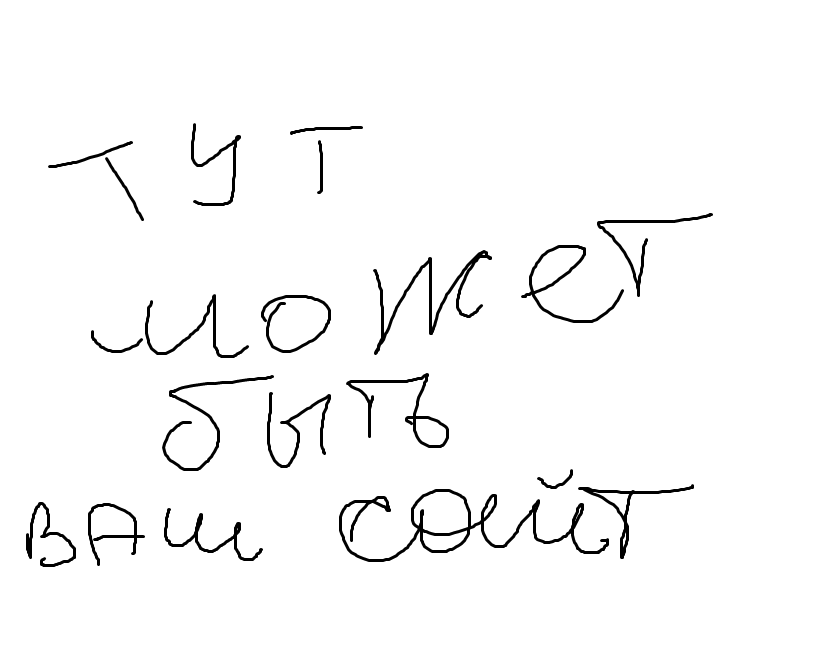 ТУТ
может
быть
ВАш сайт